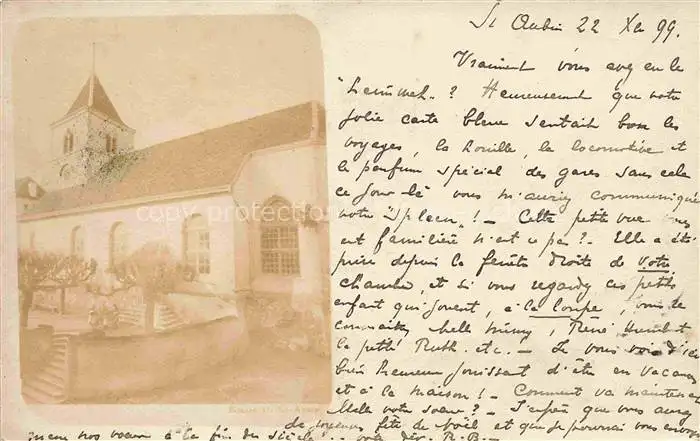 St Aubin 22 Xe 99.
Vraiment vous avez eu le
"Heimweh" ? Heureusement que votre
jolie carte bleue sentait bon les
voyages, la houille, la locomotive et
le parfum spécial des gares sans cela
ce jour là vous m'auriez communiqué
votre "Spleen" ! - Cette petite vue vous
est familière n'est ce pas ? - Elle a été
prise depuis la fenêtre droite de votre
chambre, et si vous regardez ces petits
enfants qui jouent, à la loupe, vous
Melle René Humbert
la petite Ruth. etc. - Je vous vois d'ici
bien heureuse jouissant d'être en vacances
et à la maison ! - Comment va maintenant
Melle votre soeur ? - J'espère que vous aurez
de joyeuses fête de Noël et que je pourrai vous
mes voeux à la fin du siècle ! votre R. B. -
copyright protected